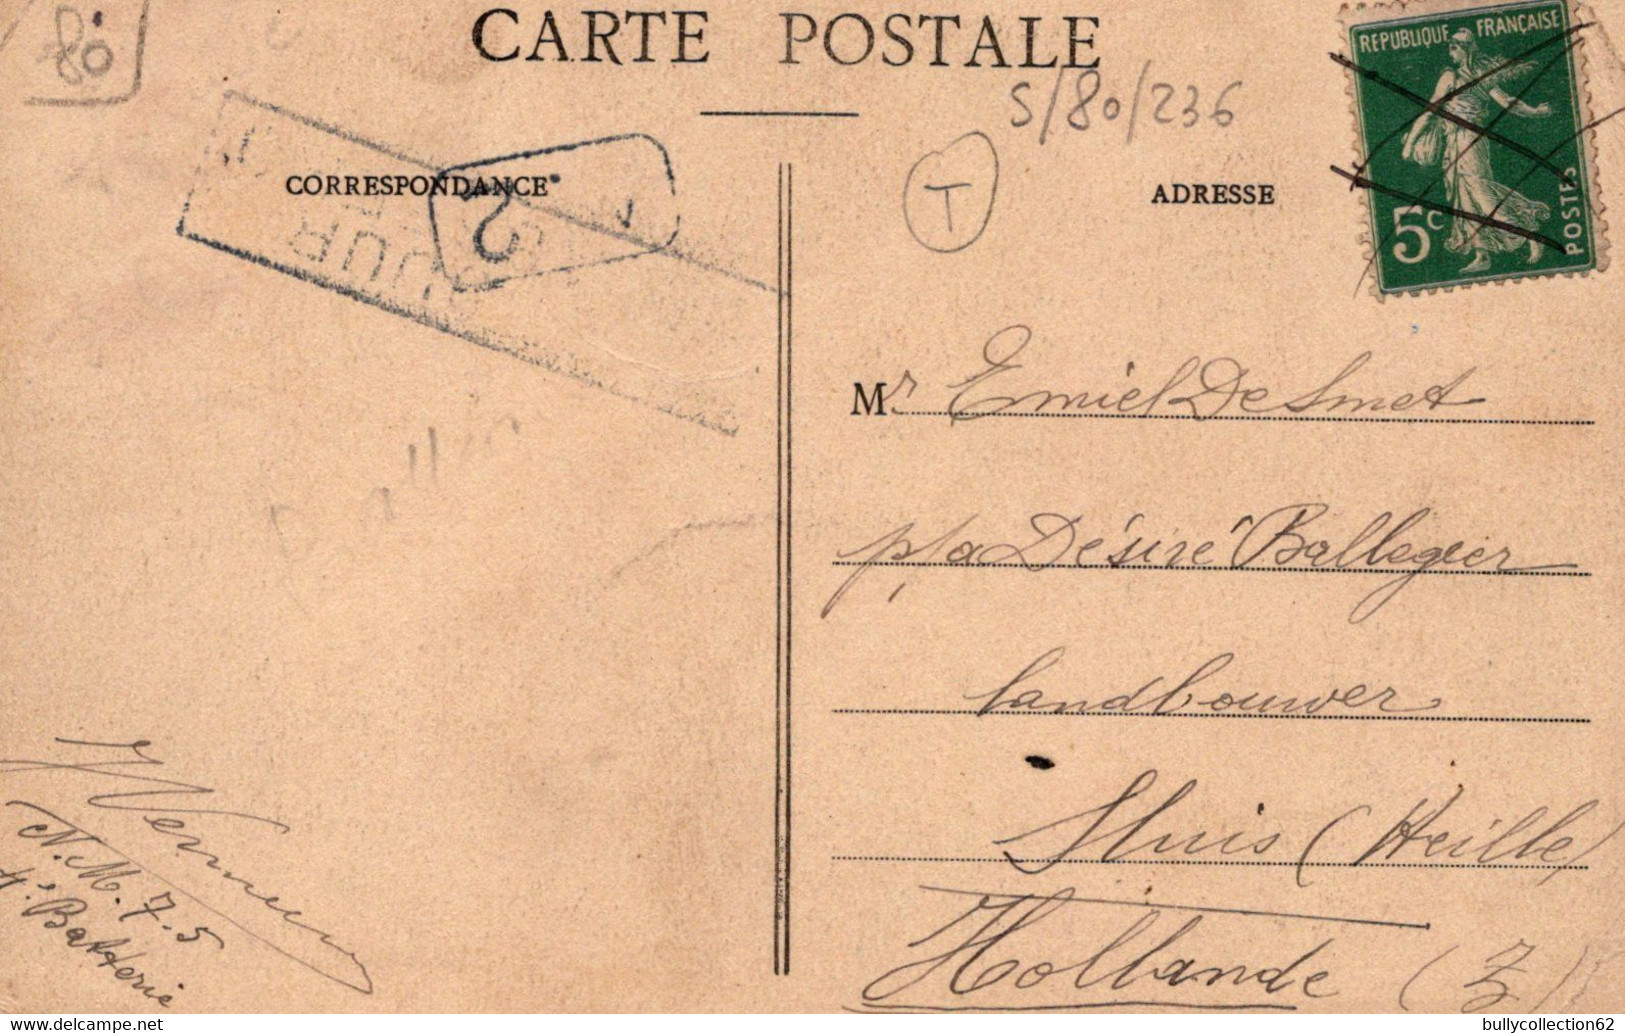 80
CARTE POSTALE
S/80/236
REPUBLIQUE FRANÇAISE
5c
POSTES
CORRESPONDANCE
2
T
ADRESSE
JOUR
Mr Emiel De Smet
p/a Désiré Ballegeer
landbouwer
Sluis (Heille)
Hollande (Z)
N.M. 7-5
Batterie
bullycollection62